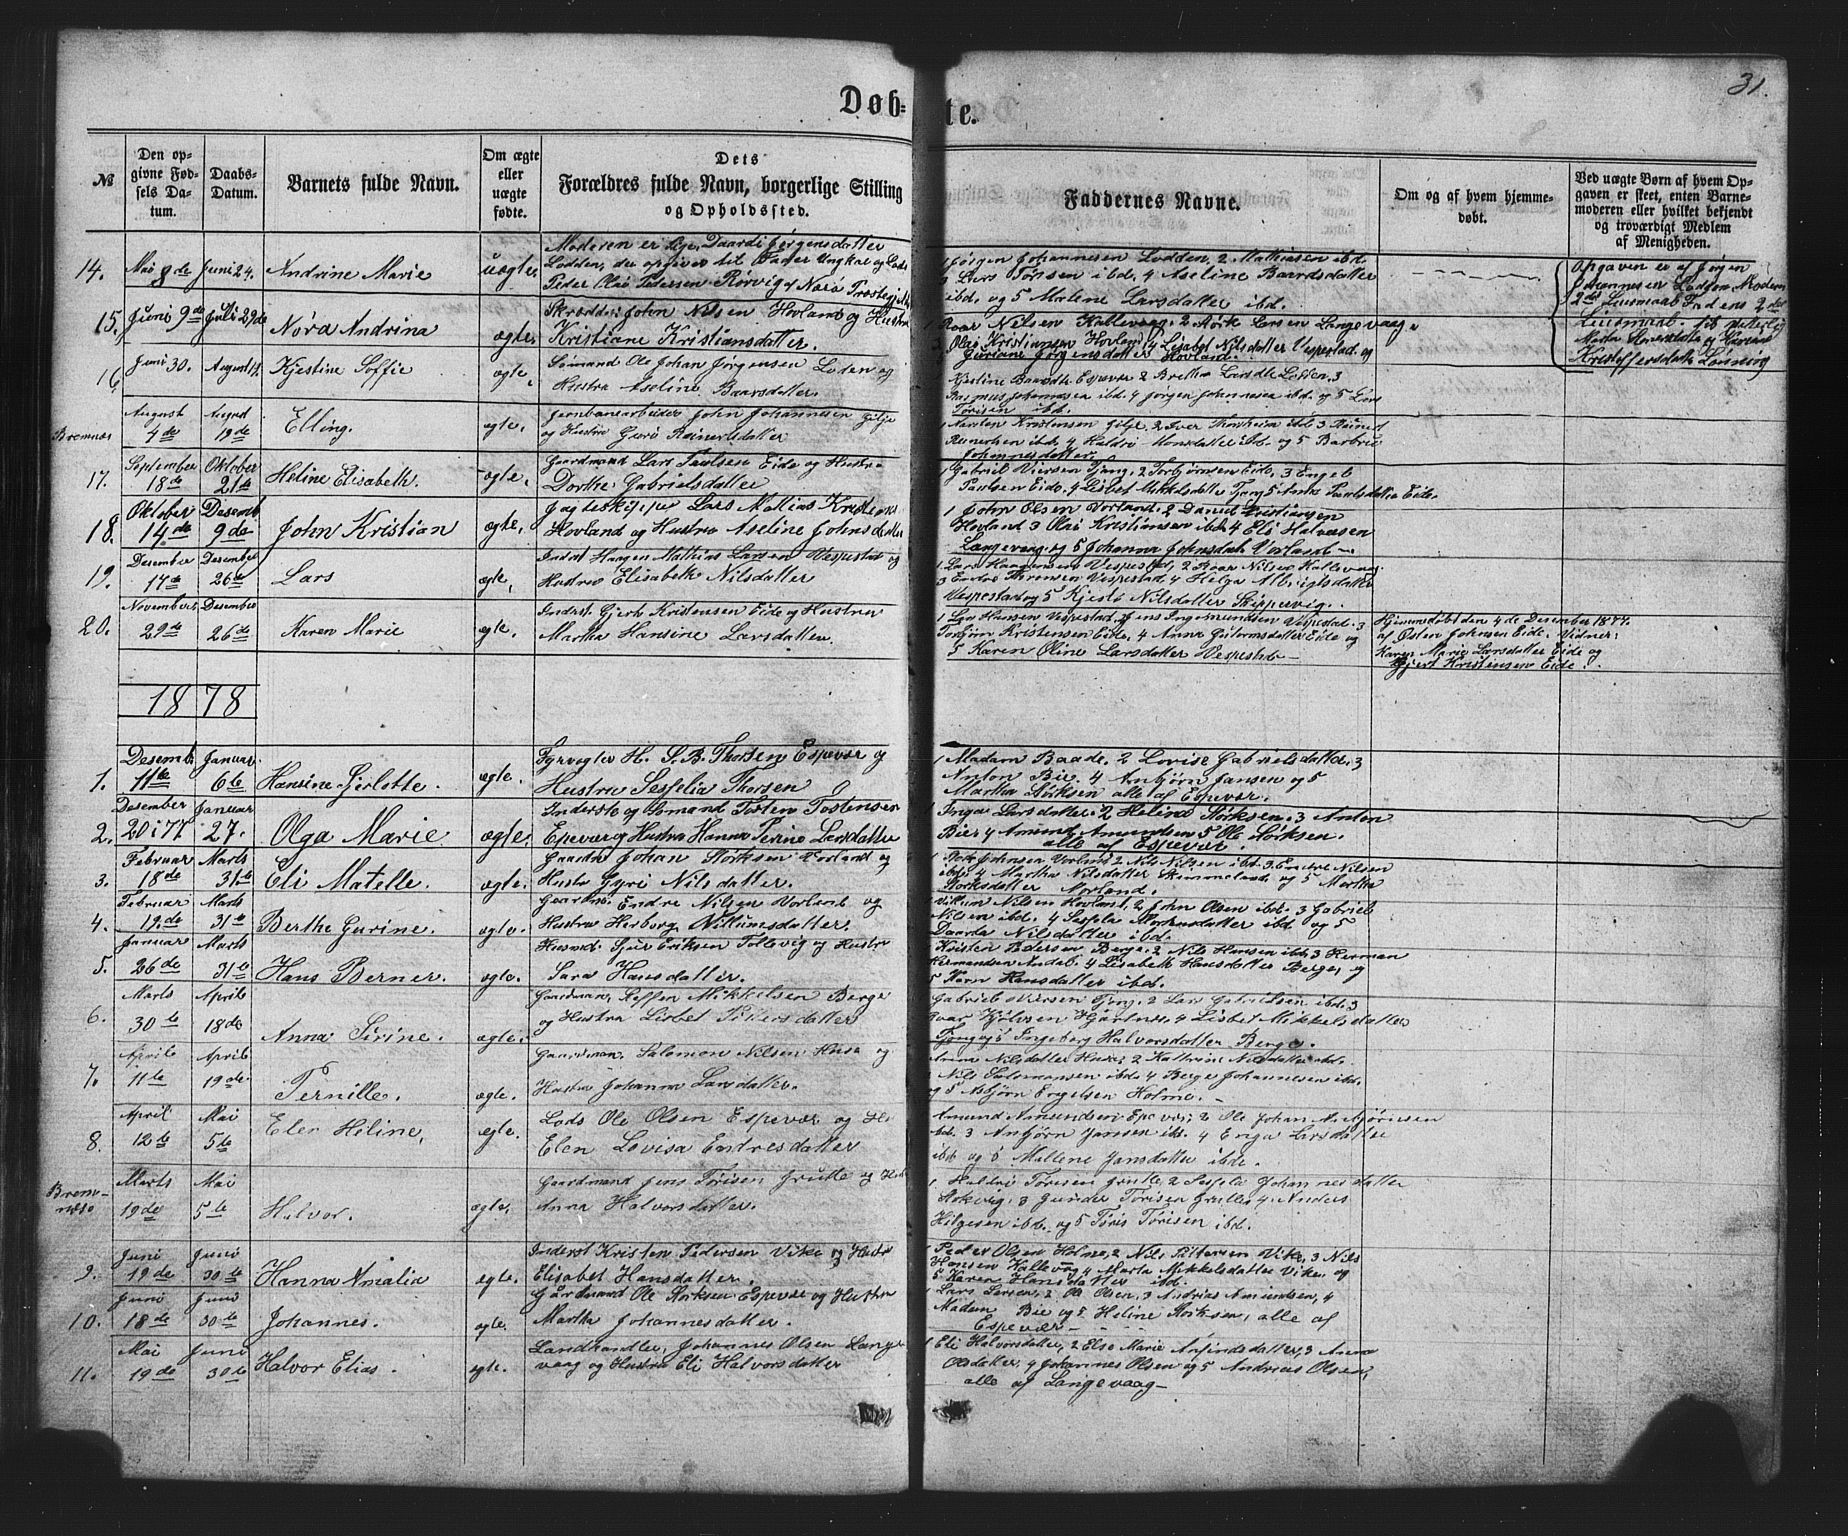 31.
Døbte.
№
Den opgivne Fødsels Datum.
Daabs-Datum.
Barnets fulde Navn.
Om ægte eller uægte fødte.
Dets Forældres fulde Navn, borgerlige Stilling og Opholdssted.
Faddernes Navne.
Om og af hvem hjemmedøbt.
Ved uægte Børn af hvem Opgaven er skeet, enten Barnemoderen eller hvilket bekjendt og troværdigt Medlem af Menigheden.
14. Mai 8de Juni 24. Andrine Marie uægte.
Moderen er Pige Daardi Jørgensdatter
Lodden, der opgiver til Fader Ungkar og Lods
Peder Olai Pedersen Rørvig af Præstegj
1 Jørgen Johannesen Lodden, 2 Mathias ibd.
3 Lars Tørisen ibd. 4 Aseline Baardsdatter
ibd. og 5 Malene Larsdatter ibd.
Opgaven er af Jørgen
Johannesen Lodden Moderen
15. Juni 9de Juli 29de Nora Andrina ægte.
Skrædder John Nilsen Hovland og Hustru
Kristiane Kristiansdatter.
1 Roar Nilsen Kallevaag, 2 Størk Larsen Langevaag
3 Olai Kristiansen Hovland 4 Lisabet Nilsdatter Vespestad og
Guriane Jørgensdatter Hovland.
16. Juni 30. August 19. Kjestine Soffie ægte.
Sømand Ole Johan Jørgensen Loden og
Hustru Aseline Baarsdatter.
Kjestine Baardsdt. Espevær 2 Bertha Larsdtr Lodden, 3
Rasmus Johannesen ibd. 4 Jørgen Johannesen ibd. og 5 Lars
Tørisen ibd.
Bremnæs August 4de August 19de Elling. ægte.
Jernbanearbeider John Johannesen Gilje
og Hustru Guro Reinertsdatter
17. September 18de Oktober 21de Heline Elisabeth. ægte.
Gaardmand Lars Paulsen Eide og Hustru
Dorthe Gabrielsdatter
1 Gabriel Viersen Tjong, 2 Torbjørnsen Eide, 3 Engel
Paulsen Eide, 4 Lisbet Mikkelsdatter Tjong 5 Anna Paulsdatter Eide.
18. Oktober 14de Desemb. 9de John Kristian ægte.
Jagteskipper Lars Mathias Kristians
Hovland og Hustru Aseline Johnsdatter
1 John Olsen Vorland, 2 Daniel Kristiansen
Hovland 3 Olai Kristiansen ibd. 4 Eli Halvorsen
Langevaag, og 5 Johanna Johnsdatr Vorland.
19. Desember 17de Desember 26de Lars ægte.
Inderst Haagen Mathias Larsen Vespestad og
Hustru Elisabeth Nilsdatter
1 Lars Haagensen Vespestad, 2 Roar Nilsen Kallevaag.
Vespestad og 5 Kjesti Nilsdatter Skippevig.
20. November 29de Desember 26de Karen Marie ægte.
Inderst Gjert Kristensen Eide og Hustru
Martha Hansine Larsdatter.
1 Lars Hansen Vespestad, 2 Jens Ingemundsen Vespestad. 3
Torbjørn Kristensen Eide, 4 Anna Gutormsdatter Eide og
5 Karen Oline Larsdatter Vespestad
Hjemmedøbt den 4de Desember 1877.
af Østen Johnsen Eide. Vidner:
Karen Marie Larsdatter Eide og
Gjert Kristensen Eide.
1878
1. Desemb. 11te Januar 6te Hansine Gjerlotte. ægte.
Fyrvogter H. S. B. Thorsen Espevær og
Hustru Sesselia Thorsen
1 Madam Baade, 2 Lovise Gabrielsdatter, 3
Anton Bie, 4 Anbjørn Jansen og 5
Martha Størksen alle af Espevær.
2. Desember 20 i 77 Januar 27. Olga Marie ægte.
Inderste og Sømand Tosten Tostensen
Espevær og Hustru Hanna Serine Larsdatter
1 Inga Larsdatter. 2 Helina Størksen. 3 Anton
Bie 4 Amund Amundsen 5 Ole Størksen.
alle af Espevær.
3. Februar 18de Marts 31te Eli Matelle. ægte.
Gaardm. Johan Størksen Vorland og
Hustru Gyri Nilsdatter.
1 Johnsen Vorland 2 Nils Nilsen ibd. 3 Endre Nilsen
ibd. 4 Martha Nilsdatter Stemmeland og 5 Martha
Størksdatter Vorland.
4. Februar 19de Marts 31te Berthe Gurine. ægte.
Gaardm. Endre Nilsen Vorland og
Hustru Herborg Villumsdatter.
Villum Nilsen Hovland, 2 John Olsen ibd. 3 Gabriel
Nilsen ibd. 4 Sessela Mortensdatter ibd og 5
Daarda Nilsdatter ibd.
5. Januar 26de Marts 31te Hans Berner. ægte.
Husmd. Sjur Eriksen Tollevig og Hustru
Sara Hansdatter.
Krister Pedersen Berge, 2 Nils Hansen ibd. 3 Herman
Hermandsen Andal, 4 Lisabeth Hansdatter Berge, og
5 Kari Hansdatter ibd.
6. Marts 30te April 18de Anna Sirine. ægte.
Gaardman. Steffen Mikkelsen Berge
og Hustru Lisbet Pittersdatter
Gabriel Viersen Tjong, 2 Lars Gabrielsen ibd. 3
4 Lisbet Mikkelsdatter
Tjong og 5 Ingeborg Halvorsdatter Berge.
7. April 11te April 19de Pernille. ægte.
Gaardman. Salomon Nilsen Huse og
Hustru Johanna Larsdatter.
Anna Nilsdatter Huse, 2 Kathrine Nilsdatter ibd.
3 Nils Salomonsen ibd. 4 Berge Johannesen ibd.
og 5 Asbjørn Engelsen Holme.
8. April 12te Mai 5te Elen Heline. ægte.
Lods Ole Olsen Espevær og H
Elen Lovisa Endresdatter
Amund Amundsen Espevær, 2 Ole Johan Anbjørnsen
ibd. 3 Anbjørn Jansen ibd. 4 Enga Larsdatter
ibd og 5 Mallene Jansdatter ibd.
Bremnæs Marts 19de Mai 5te Halvor. ægte.
Gaardmand Jens Tørisen Grutle og Hu
Anna Halvorsdatter.
1 Haldri Tørisen Grutle, 2 Sessela Johannesdatter
3 Gunder Tørisen Grutle 4 Anders
Helgesen ibd. og 5 Tøris Tørisen ibd.
9. Juni 19de Juni 30te Hanna Amalia ægte.
Inderst Kristen Pedersen Vike og Hustru
Elisabet Hansdatter.
1 Peder Olsen Holme, 2 Nils Pittersen Vike, 3 Nils
Hansen Kallevaag 4 Marta Mikkelsdatter Vike. og
5 Karen Hansdatter ibd.
10. Juni 18de Juni 30te Johannes. ægte.
Gaardmand Ole Størksen Espevær og Hustru
Martha Johannesdatter.
1 Lars Larsen, 2 Ole Olsen, 3 Andrias Amundsen, 4
Madam Bie og 5 Heline Størksen, alle af
Espevær
11. Mai 19de Juni 30te Halvor Elias. ægte.
Landhandler, Johannes Olsen Lange-
vaag og Hustru Eli Halvorsdatter
1 Eli Halvorsdatter, 2 Else Marie Anfindsdatter, 3 Anna
Olsdatter, 4 Johannes Olsen og 5 Andrias Olsen,
alle af Langevaag